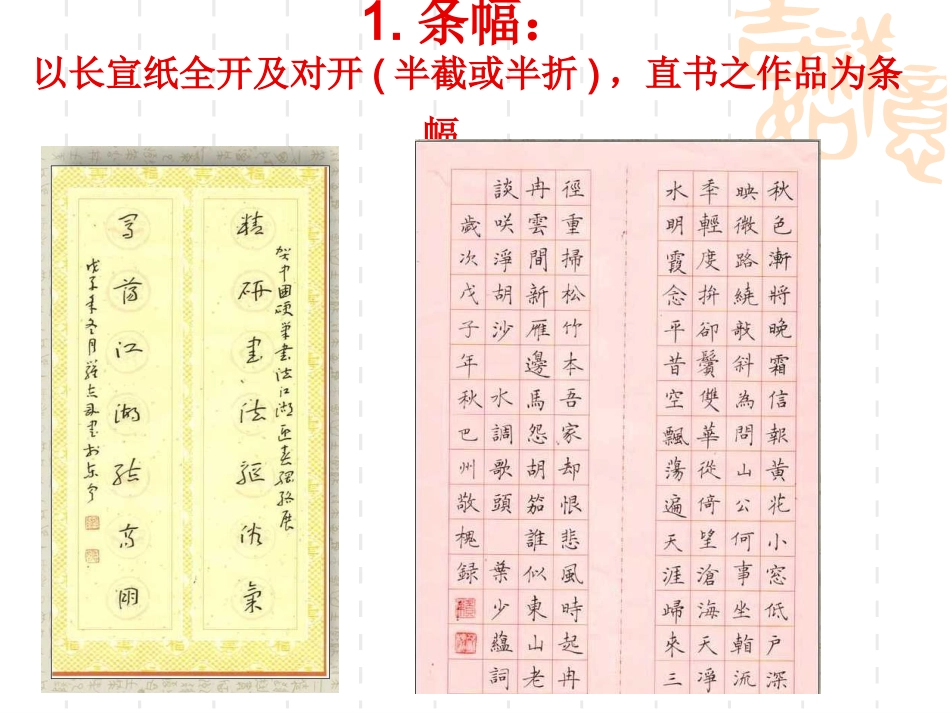 1. 条幅：
以长宣纸全开及对开 ( 半截或半折 ) ，直书之作品为条
幅
賀中國硬筆書法江湖迎春網絡展
精研書法驅俗氣
蕩江湖結高朋
戊子年冬月羅書於東寧
秋色漸將晚霜信報黃花小窓低戶深
映微路繞敧斜為問山公何事坐看流
秊輕度拚卻鬢雙華徙倚望滄海天淨
水明霞念平昔空飄蕩遍天涯歸來三
徑重掃松竹本吾家却恨悲風時起冉
冉雲間新雁邊馬怨胡笳誰似東山老
談咲淨胡沙 水調歌頭 葉少蘊詞
歲次戊子年秋巴州敬槐録